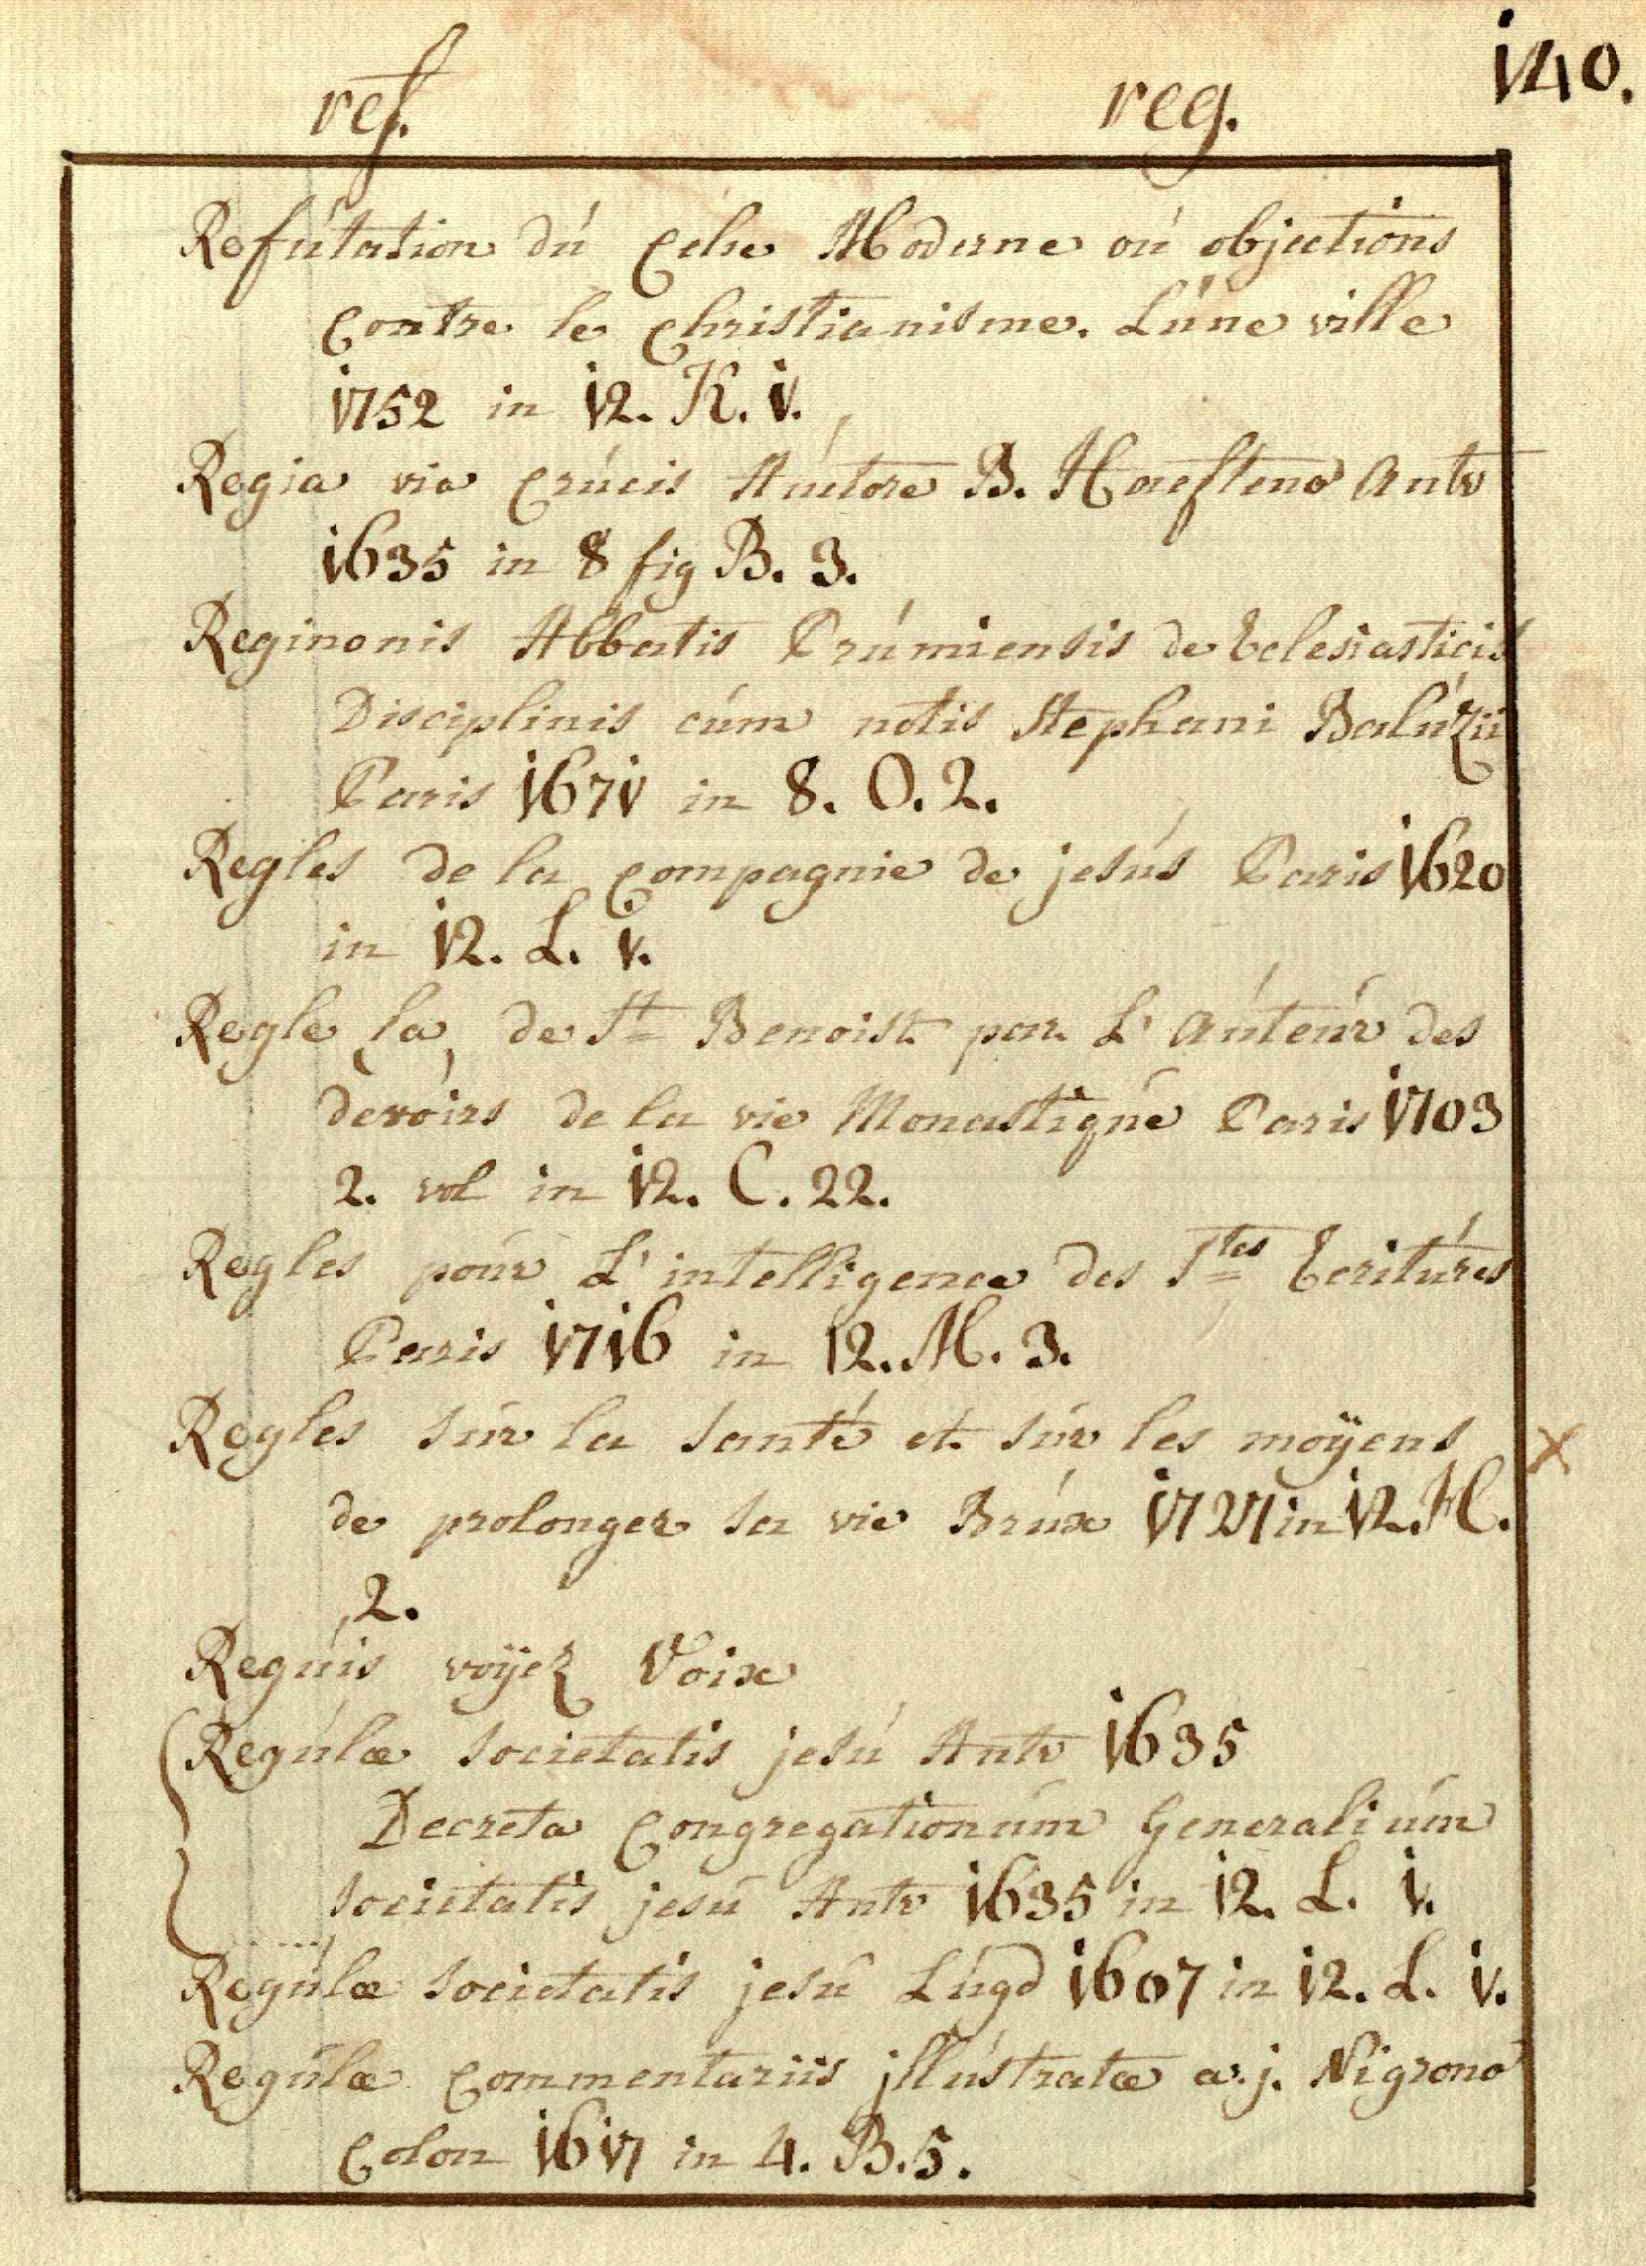 ref. reg. 140.
Refútation dú Celse Moderne oú objections
Contre le Christianisme. Lúne ville
1752 in 12. K. 1.
Regia via Crúcis Aúctore B. Haefteno Antv
1635 in 8 fig B. 3.
Reginonis Abbatis Prúmiensis de Eclesiasticis
Disciplinis cúm notis Stephani Balúzii
Paris 1671 in 8. O. 2.
Regles de la Compagnie de jesús Paris 1620
in 12. L. 1.
Regle la, de St Benoist par L' Aúteúr des
devoirs de la vie Monastiqúe Paris 1703
2. vol in 12. C. 22.
Regles poúr L' intelligence des Stes Ecritúres
Paris 1716 in 12. M. 3.
Regles súr la santé et súr les moÿens
de prolonger sa vie Brúx 1727 in 12. H.
2.
Regúis voÿez Voix
Regúlæ societatis jesú Antv 1635
Decreta Congregationúm Generaliúm
societatis jesú Antv 1635 in 12. L. 1.
Regúlæ societatis jesú Lúgd 1607 in 12. L. 1.
Regúlæ Commentariis jllústratæ a. j. Nigrono
Colon 1617 in 4. B. 5.